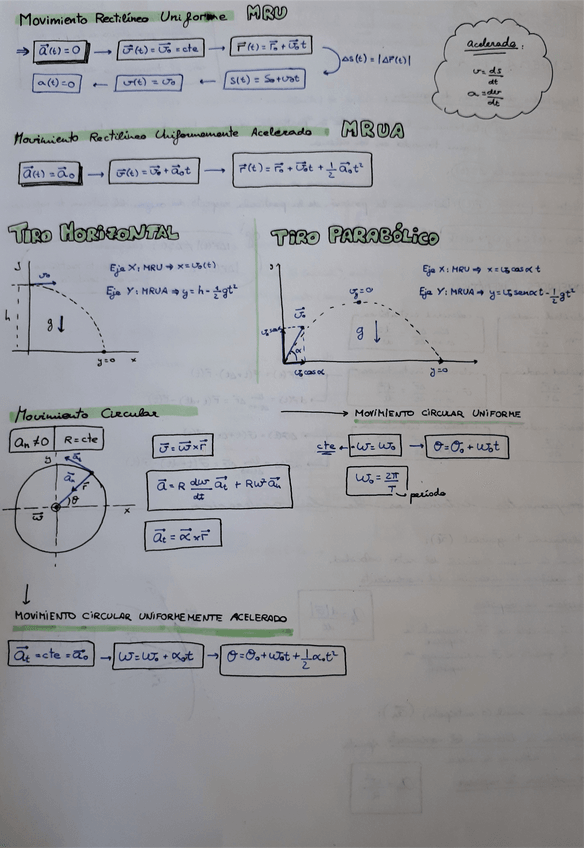 Movimiento Rectilíneo Uniforme MRU
⇒ a⃗(t)=0 → v⃗(t)=v⃗₀=cte → r⃗(t)=r⃗₀+v⃗₀t
Δs(t)=|Δr⃗(t)|
a(t)=0 ← v(t)=v₀ ← s(t)=s₀+v₀t
acelerado:
v=ds/dt
a=dv/dt
Movimiento Rectilíneo Uniformemente Acelerado: MRUA
a⃗(t)=a⃗₀ → v⃗(t)=v⃗₀+a⃗₀t → r⃗(t)=r⃗₀+v⃗₀t+½a⃗₀t²
TIRO HORIZONTAL
Eje X: MRU ⇒ x=v₀(t)
Eje Y: MRUA ⇒ y=h-½gt²
y
v₀
h
g↓
y=0
x
TIRO PARABÓLICO
Eje X: MRU ⇒ x=v₀cosα t
Eje Y: MRUA ⇒ y=v₀senαt-½gt²
y
v⃗₀
α
v₀cosα
vy=0
g↓
y=0
x
Movimiento Circular
aₙ≠0 R=cte
y
a⃗ₜ
a⃗ₙ
r⃗
θ
w⃗
x
v⃗=w⃗×r⃗
a⃗=R dw/dt a⃗ₜ+Rw²a⃗ₙ
a⃗ₜ=α⃗×r⃗
→ MOVIMIENTO CIRCULAR UNIFORME
cte ← w=w₀ → θ=θ₀+w₀t
w₀=2π/T
período
↓
MOVIMIENTO CIRCULAR UNIFORMEMENTE ACELERADO
a⃗ₜ=cte=a⃗₀ → w=w₀+α₀t → θ=θ₀+w₀t+½α₀t²